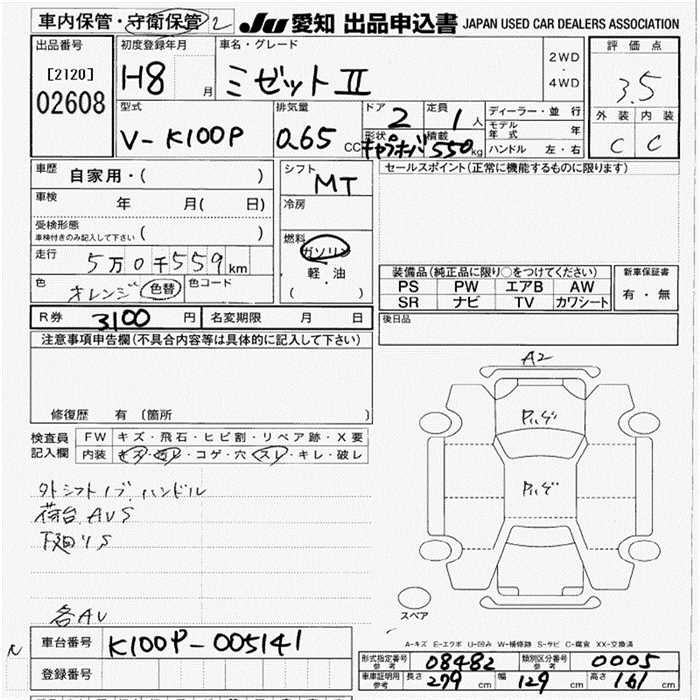 車内保管・守衛保管 2 JU 愛知 出品申込書 JAPAN USED CAR DEALERS ASSOCIATION
出品番号 初度登録年月 車名・グレード 評価点
[2120] H8 月 ミゼットⅡ 2WD ・ 4WD 3.5
02608
型式 排気量 ドア 定員 ディーラー・並行 外装 内装
V-K100P 0.65 CC 2 1人 モデル年式 年 C C
形状 積載 550kg ハンドル 左・右
車歴 自家用・( ) シフト MT セールスポイント(正常に機能するものに限ります)
車検 年 月( 日) 冷房
受検形態
車検付きのみ記入して下さい ( )
燃料 ガソリン
走行 5万0千559km 軽・油
色 オレンジ 色替 色コード ( )
装備品(純正品に限り○をつけてください) 新車保証書
PS PW エアB AW 有・無
SR ナビ TV カワシート
R券 3100円 名変期限 月 日 後日品
注意事項申告欄(不具合内容等は具体的に記入して下さい)
A2
修復歴 有 (箇所 )
検査員記入欄 FW キズ・飛石・ヒビ割・リペア跡・X要
内装 キズ・ヨゴレ・コゲ・穴・スレ・キレ・破レ
外シフトノブ、ハンドル
荷台AVS
下廻りS
各AU
スペア
A-キズ E-エクボ U-凹み W-補修跡 S-サビ C-腐食 XX-交換済
車台番号 K100P-005141
形式指定番号 参考 08482 類別区分番号 参考 0005
登録番号
車庫証明用 参考 長さ 279cm 幅 129cm 高さ 161cm